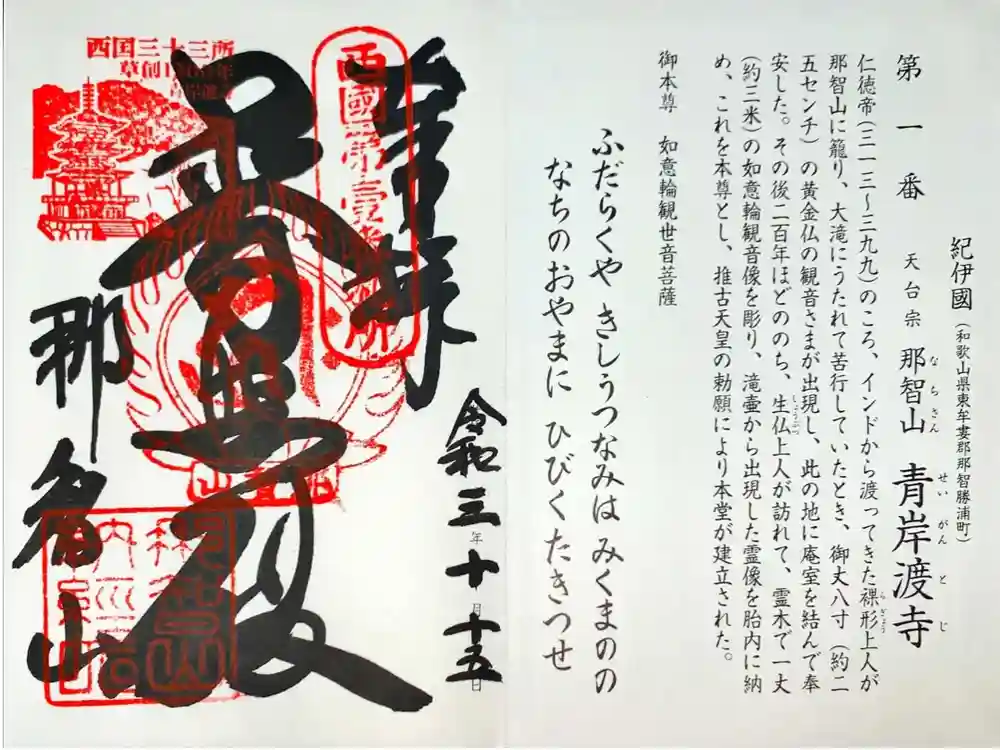 紀伊國(和歌山県東牟婁郡那智勝浦町)
第一番 天台宗 那智山 青岸渡寺
なちさん せいがんとじ
仁徳帝(三一三〜三九九)のころ、インドから渡ってきた裸形上人が
らぎょう
那智山に籠り、大滝にうたれて苦行していたとき、御丈八寸(約二
五センチ)の黄金仏の観音さまが出現し、此の地に庵室を結んで奉
安した。その後二百年ほどののち、生仏上人が訪れて、霊木で一丈
しょうぶつ
(約三米)の如意輪観音像を彫り、滝壷から出現した霊像を胎内に納
め、これを本尊とし、推古天皇の勅願により本堂が建立された。
御本尊 如意輪観世音菩薩
ふだらくや きしうつなみは みくまのの
なちのおやまに ひびくたきつせ
奉拝
令和三年十月十五日
普照殿
那智山
西国三十三所
草創1300年